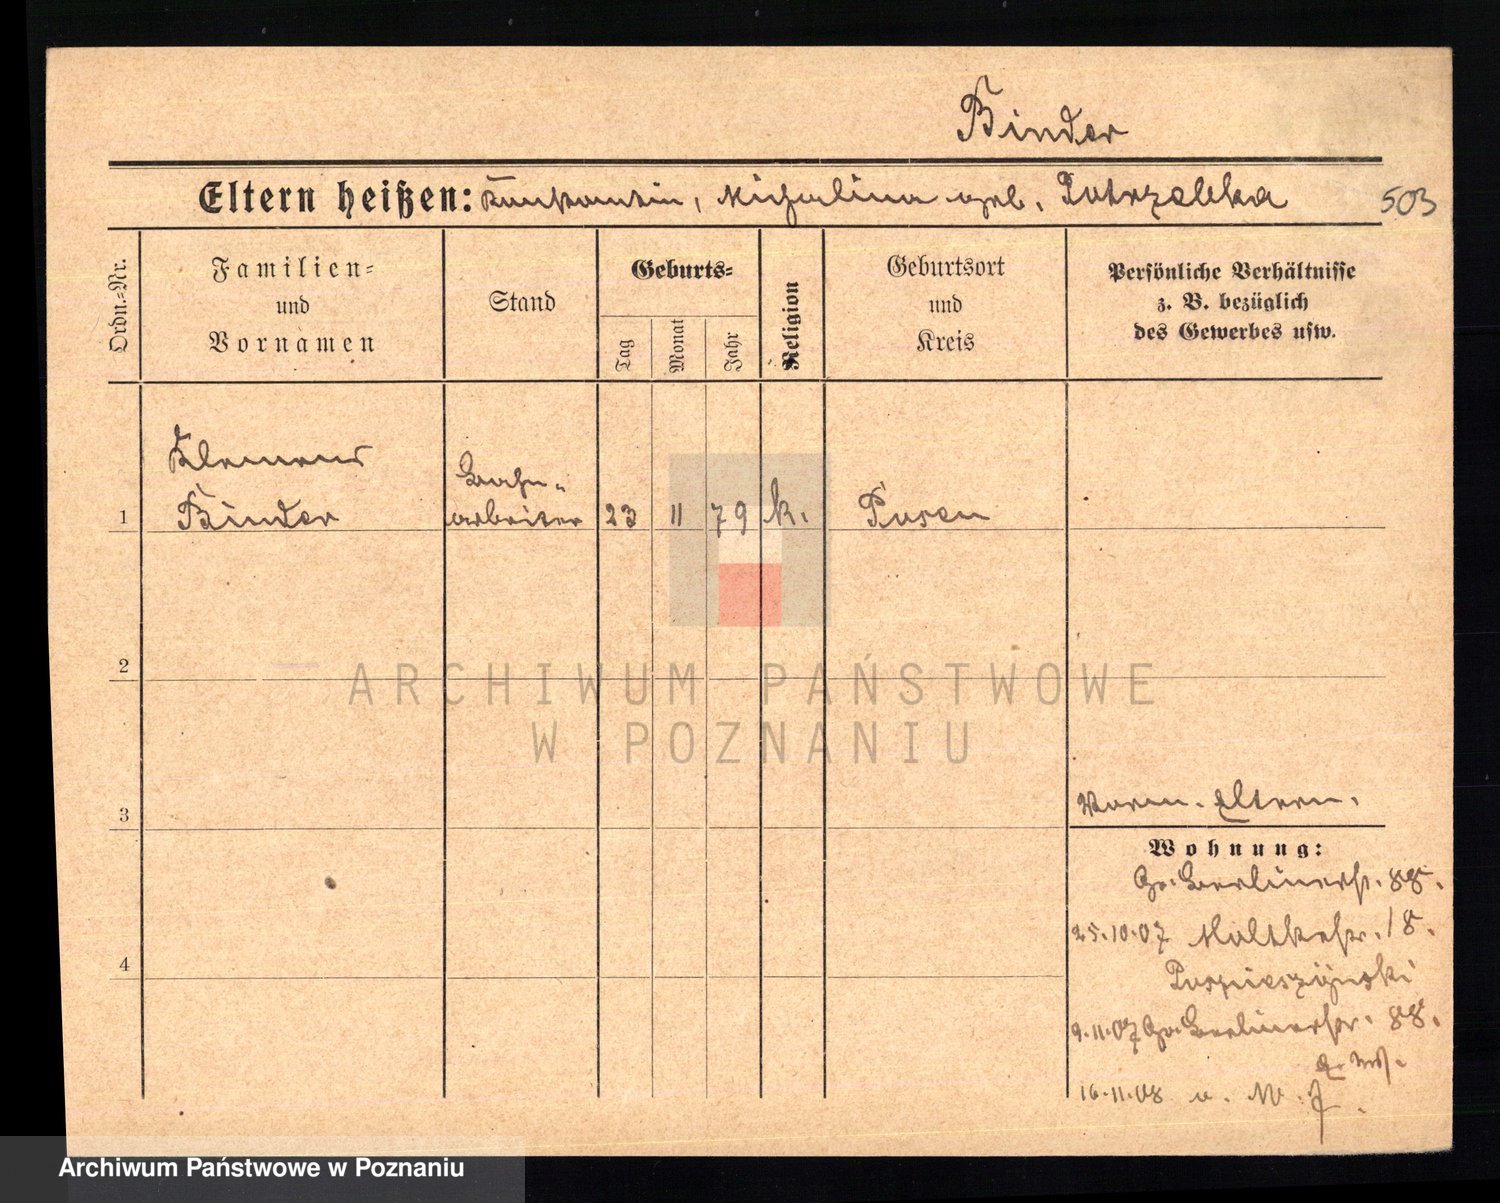 Binder
Eltern heißen: Konstantin, Michalina geb. Potrzebka
503
Ordn.=Nr.
Familien=
und
Vornamen
Stand
Geburts=
Tag
Monat
Jahr
Religion
Geburtsort
und
Kreis
Persönliche Verhältnisse
z. B. bezüglich
des Gewerbes usw.
Klemens
Bahn-
1 Binder arbeiter 23 11 79 k. Posen
2
ARCHIWUM PAŃSTWOWE
W POZNANIU
3
Eltern.
Wohnung:
Gr. Berlinerstr. 88.
25.10.07 Moltkestr. 18.
4
9.11.07 Gr. Berlinerstr. 88.
16.11.08
Archiwum Państwowe w Poznaniu